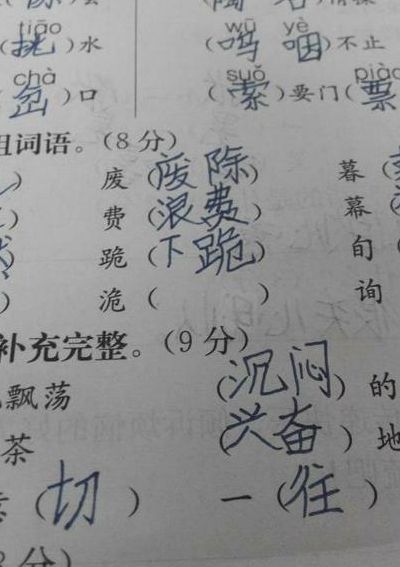 tiāo wū yè
(挑)水 (呜 咽)不止
chà suǒ piào
(岔)口 (索)要门(票
组词语。(8 分)
) 废(废除) 暮(
) 费(浪费) 幕(
) 跪(下跪) 旬(
) 诡( ) 询(
补充完整。(9 分)
飘荡 (沉闷)的
茶 (兴奋)地
(切) 一(往)
分)